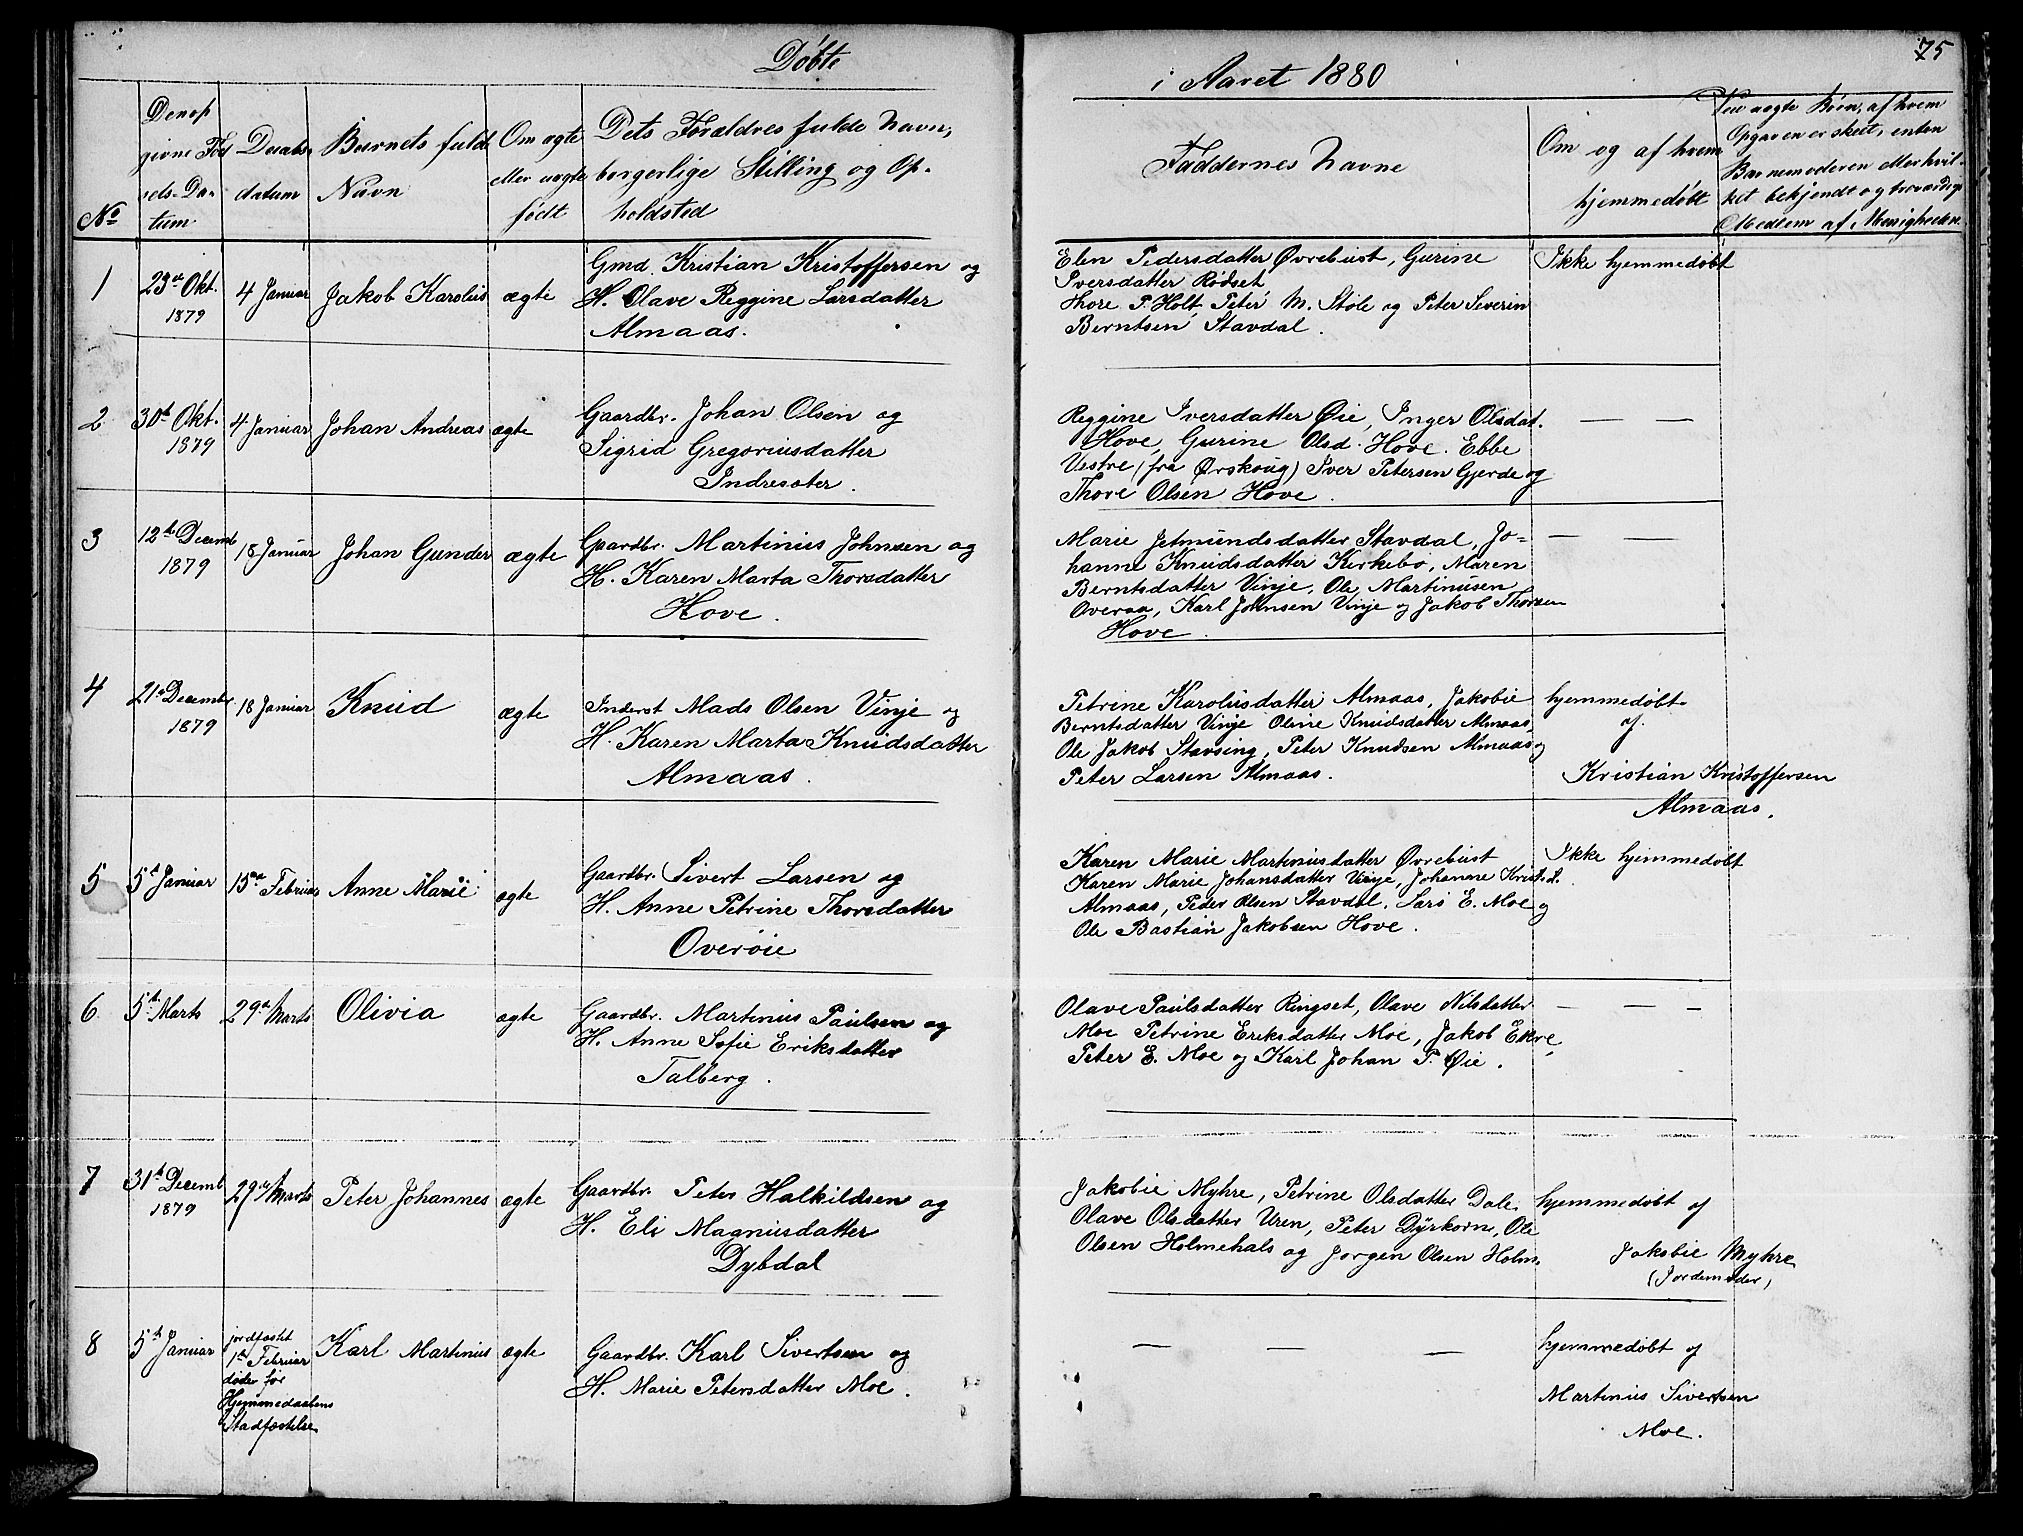 Døbte
i Aaret 1880
75
No
Den op
givne Fød
sels-Da-
tum
Daabs-
datum
Barnets fulde
Navn
Om ægte
eller uægte
født
Dets Forældres fulde Navn,
borgerlige Stilling og Op-
holdsted
Faddernes Navne
Om og af hvem
hjemmedøbt
Ved uægte Børn, af hvem
Opgaven er skeet, enten
Barnemoderen eller hvil-
ket bekjendt og troværdigt
Medlem af Menigheden
1
23de Okt.
1879
4 Januar
Jakob Karolus
ægte
Gmd. Kristian Kristoffersen og
H. Olave Reggine Larsdatter
Almaas.
Elen Pedersdatter Øvrebust, Gurine
Iversdatter Rødset
Thore P. Holt, Peter M. Støle og Peter Severin
Berntsen Stavdal.
Ikke hjemmedøbt
2
30te Okt.
1879
4 Januar
Johan Andreas
ægte
Gaardbr. Johan Olsen og
Sigrid Gregoriusdatter
Indresæter.
Reggine Iversdatter Øie, Inger Olsdat.
Hove, Gurine Olsd. Hove. Ebbe
Vestre (fra Ørskoug) Iver Petersen Gjerde og
Thore Olsen Hove.
— —
3
12te Decemb
1879
18 Januar
Johan Gunder
ægte
Gaardbr. Martinus Johnsen og
H. Karen Marta Thorsdatter
Hove.
Marie Jetmundsdatter Stavdal, Jo-
hanne Knudsdatter Kirkebø, Maren
Berntsdatter Vinje, Ole Martinusen
Overaa, Karl Johnsen Vinje og Jakob Thorsen
Hove.
— —
4
21de December
1879
18 Januar
Knud
ægte
Inderst Mads Olsen Vinje og
H. Karen Marta Knudsdatter
Almaas.
Petrine Karolusdatter Almaas, Jakobie
Berntsdatter Vinje Oline Knudsdatter Almaas,
Ole Jakob Stavsing, Peter Knudsen Almaas og
Peter Larsen Almaas.
hjemmedøbt
af
Kristian Kristoffersen
Almaas.
5
5te Januar
15de Februar
Anne Marie
ægte
Gaardbr. Sivert Larsen og
H. Anne Petrine Thorsdatter
Overøie
Karen Marie Martinusdatter Øvrebust
Karen Marie Johansdatter Vinje, Johanne Krist.d.
Almaas, Peder Olsen Stavdal, Lars E. Moe og
Ole Bastian Jakobsen Hove.
Ikke hjemmedøbt
6
5te Marts
29de Marts
Olivia
ægte
Gaardbr. Martinus Paulsen og
H. Anne Sofie Eriksdatter
Talberg.
Olave Paulsdatter Ringset, Olave Nilsdatter
Moe Petrine Eriksdatter Moe, Jakob Ekre,
Peter E. Moe og Karl Johan P. Øie.
— — —
7
31te Decemb
1879
29de Marts
Peter Johannes
ægte
Gaardbr. Peter Halkildsen og
H. Eli Magnusdatter
Dybdal
Jakobie Myhre, Petrine Olsdatter Dale
Olave Olsdatter Uren, Peter Dyrkorn, Ole
Olsen Holmehals og Jørgen Olsen Holm.
hjemmedøbt af
Jakobie Myhre
(Jordemoder)
8
5te Januar
jordfæstet
1ste Februar
døde før
Hjemmedaabens
Stadfæstelse
Karl Martinus
ægte
Gaardbr. Karl Sivertsen og
H. Marie Petersdatter Moe.
— — —
hjemmedøbt af
Martinus Sivertsen
Moe.